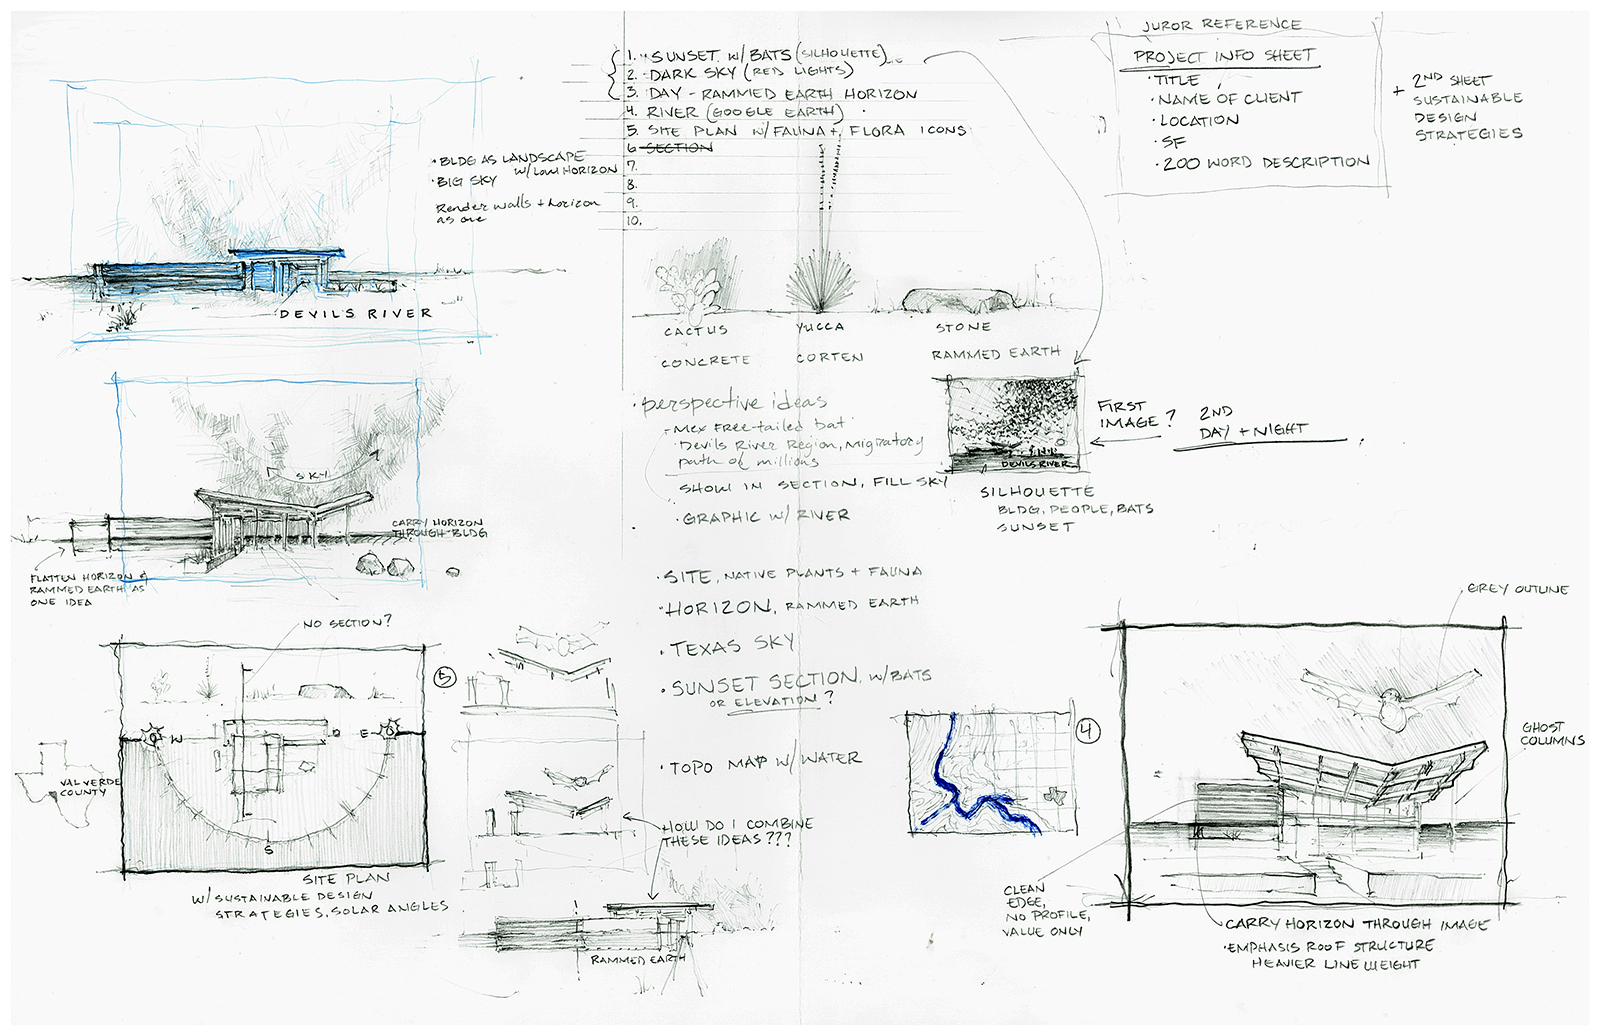 1. SUNSET W/ BATS (SILHOUETTE)
2. DARK SKY (RED LIGHTS)
3. DAY - RAMMED EARTH HORIZON
4. RIVER (GOOGLE EARTH)
5. SITE PLAN W/ FAUNA + FLORA ICONS
6 SECTION
7.
8.
9.
10.
JUROR REFERENCE
PROJECT INFO SHEET
· TITLE
· NAME OF CLIENT
· LOCATION
· SF
· 200 WORD DESCRIPTION
+ 2ND SHEET
SUSTAINABLE
DESIGN
STRATEGIES
· BLDG AS LANDSCAPE
· BIG SKY W/ LOW HORIZON
Render walls + horizon
as one
DEVILS RIVER
CACTUS
YUCCA
STONE
CONCRETE
CORTEN
RAMMED EARTH
· perspective ideas
- Mex Free-tailed bat
· Devils River Region, migratory
path of millions
SHOW IN SECTION, FILL SKY
· GRAPHIC W/ RIVER
DEVILS RIVER
FIRST
IMAGE?
2ND
DAY + NIGHT
SILHOUETTE
BLDG, PEOPLE, BATS
SUNSET
SKY
CARRY HORIZON
THROUGH BLDG
FLATTEN HORIZON &
RAMMED EARTH AS
ONE IDEA
· SITE, NATIVE PLANTS + FAUNA
· HORIZON, RAMMED EARTH
· TEXAS SKY
· SUNSET SECTION W/ BATS
OR ELEVATION?
· TOPO MAP W/ WATER
HOW DO I COMBINE
THESE IDEAS???
NO SECTION?
5
W
E
S
VAL VERDE
COUNTY
SITE PLAN
W/ SUSTAINABLE DESIGN
STRATEGIES, SOLAR ANGLES
RAMMED EARTH
4
GREY OUTLINE
GHOST
COLUMNS
CLEAN
EDGE,
NO PROFILE,
VALUE ONLY
CARRY HORIZON THROUGH IMAGE
· EMPHASIS ROOF STRUCTURE
HEAVIER LINE WEIGHT